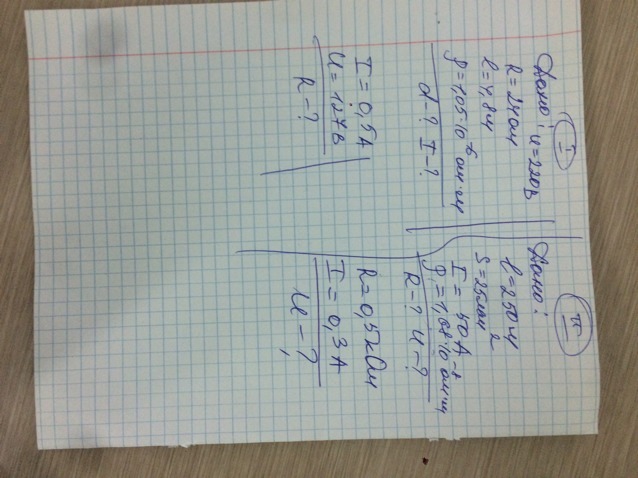 I
Дано: U=220В
R=24Ом
l=4,8м
ρ=1,05·10⁻⁶ Ом·м
d-? I-?
I=0,5А
U=127В
R-?
II
Дано:
l=250м
S=25мм²
I=50А
ρ=1,68·10⁻⁸ Ом·м
R-? U-?
R=0,5кОм
I=0,3А
U-?